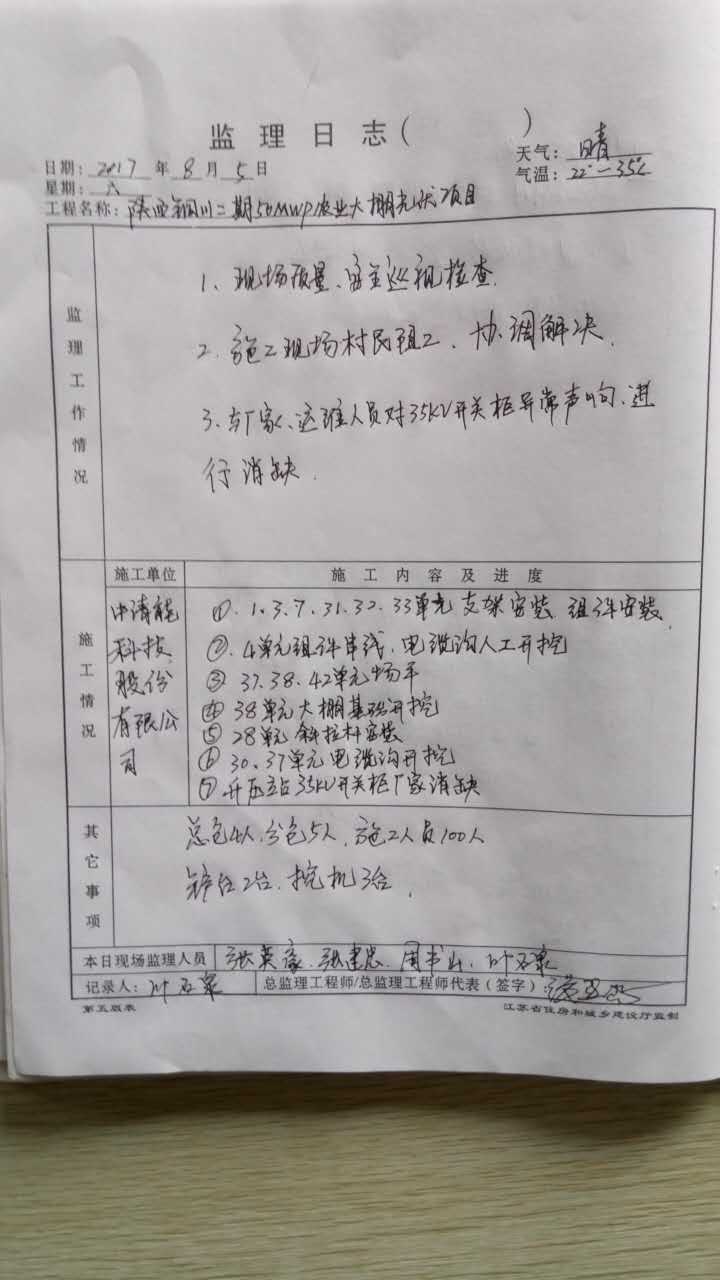 监理日志（ ）
日期：2017年8月5日 天气：晴
星期：六 气温：22°—35℃
工程名称：陕西铜川二期50MWP农业大棚光伏项目
监理工作情况
1、现场质量、安全巡视检查.
2、施工现场村民阻工、协调解决.
3、与厂家、运维人员对35KV开关柜异常声响、进
行消缺.
施工情况
施工单位 施工内容及进度
中清能
科技
股份
有限公
司
①、1、3、7、31、32、33单元支架安装、组件安装.
②、4单元组件串线、电缆沟人工开挖
③ 37、38、42单元场平
④ 38单元大棚基础开挖
⑤ 28单元斜拉杆安装
⑥ 30、37单元电缆沟开挖
⑦ 升压站35KV开关柜厂家消缺
其它事项
总包4人、分包5人、施工人员100人
2台、挖机3台.
本日现场监理人员 张英豪、张建忠、周书山、叶石泉
记录人：叶石泉 总监理工程师/总监理工程师代表（签字）：
第五版表 江苏省住房和城乡建设厅监制